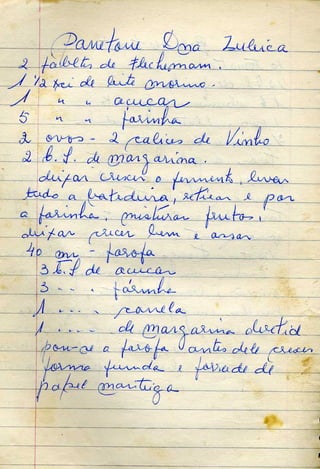 Panetone Dna Zuleica
2 tabletes de Flechemam.
1 1/2 xci de leite morno.
1 " " açucar
5 " " farinha
2 ovos - 2 calices de Vinho
2 b. S. de margarina.
deixar crescer o fermento, levar
tudo a batedeira, retirar e por
a farinha, misturar frutas,
deixar crecer bem e assar
40 m - farofa
3 b. S de acucar
3 - . . farinha
1 . . . . canela
1 . . . . de margarina
pom-ce a farofa antes dele crecer
forma funda e forrada de
papel manteiga